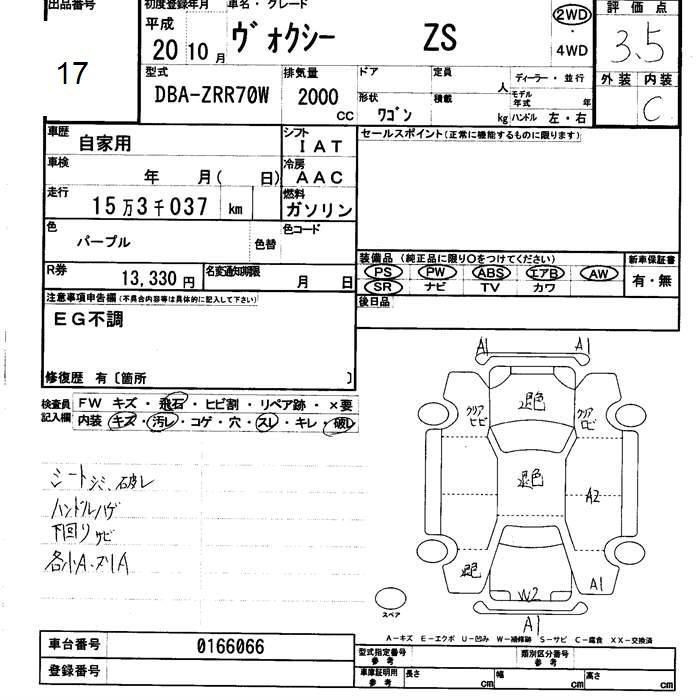 出品番号 初度登録年月 車名・グレード 評価点
平成 20 10月 ヴォクシー ZS 2WD 3.5
・
4WD
17
型式 排気量 ドア 定員 人 ディーラー・並行 外装 内装
DBA-ZRR70W 2000 CC 形状 ワゴン 積載 kg モデル年式 年 C
ハンドル 左・右
車歴 自家用 シフト IAT セールスポイント(正常に機能するものに限ります)
車検 年 月( 日) 冷房 AAC
走行 15万3千037 km 燃料 ガソリン
色 パープル 色替 色コード
装備品(純正品に限り○をつけてください) 新車保証書
R券 13,330円 名変通知期限 月 日 PS PW ABS エアB AW 有・無
SR ナビ TV カワ
注意事項申告欄(不具合内容等は具体的に記入して下さい) 後日品
EG不調
修復歴 有〔箇所 〕
検査員記入欄 FW キズ・飛石・ヒビ割・リペア跡・×要
内装 キズ・汚レ・コゲ・穴・スレ・キレ・破レ
A1 A1
クリア ヒビ 退色 クリア
シートシミ、破レ 退色 A2
ハンドルハゲ
下回りサビ
各小A・スリA 退色 A1
W2
スペア A1
A-キズ E-エクボ U-凹み W-補修跡 S-サビ C-腐食 XX-交換済
車台番号 0166066 型式指定番号 参考 類別区分番号 参考
登録番号 車庫証明用 参考 長さ cm 幅 cm 高さ cm